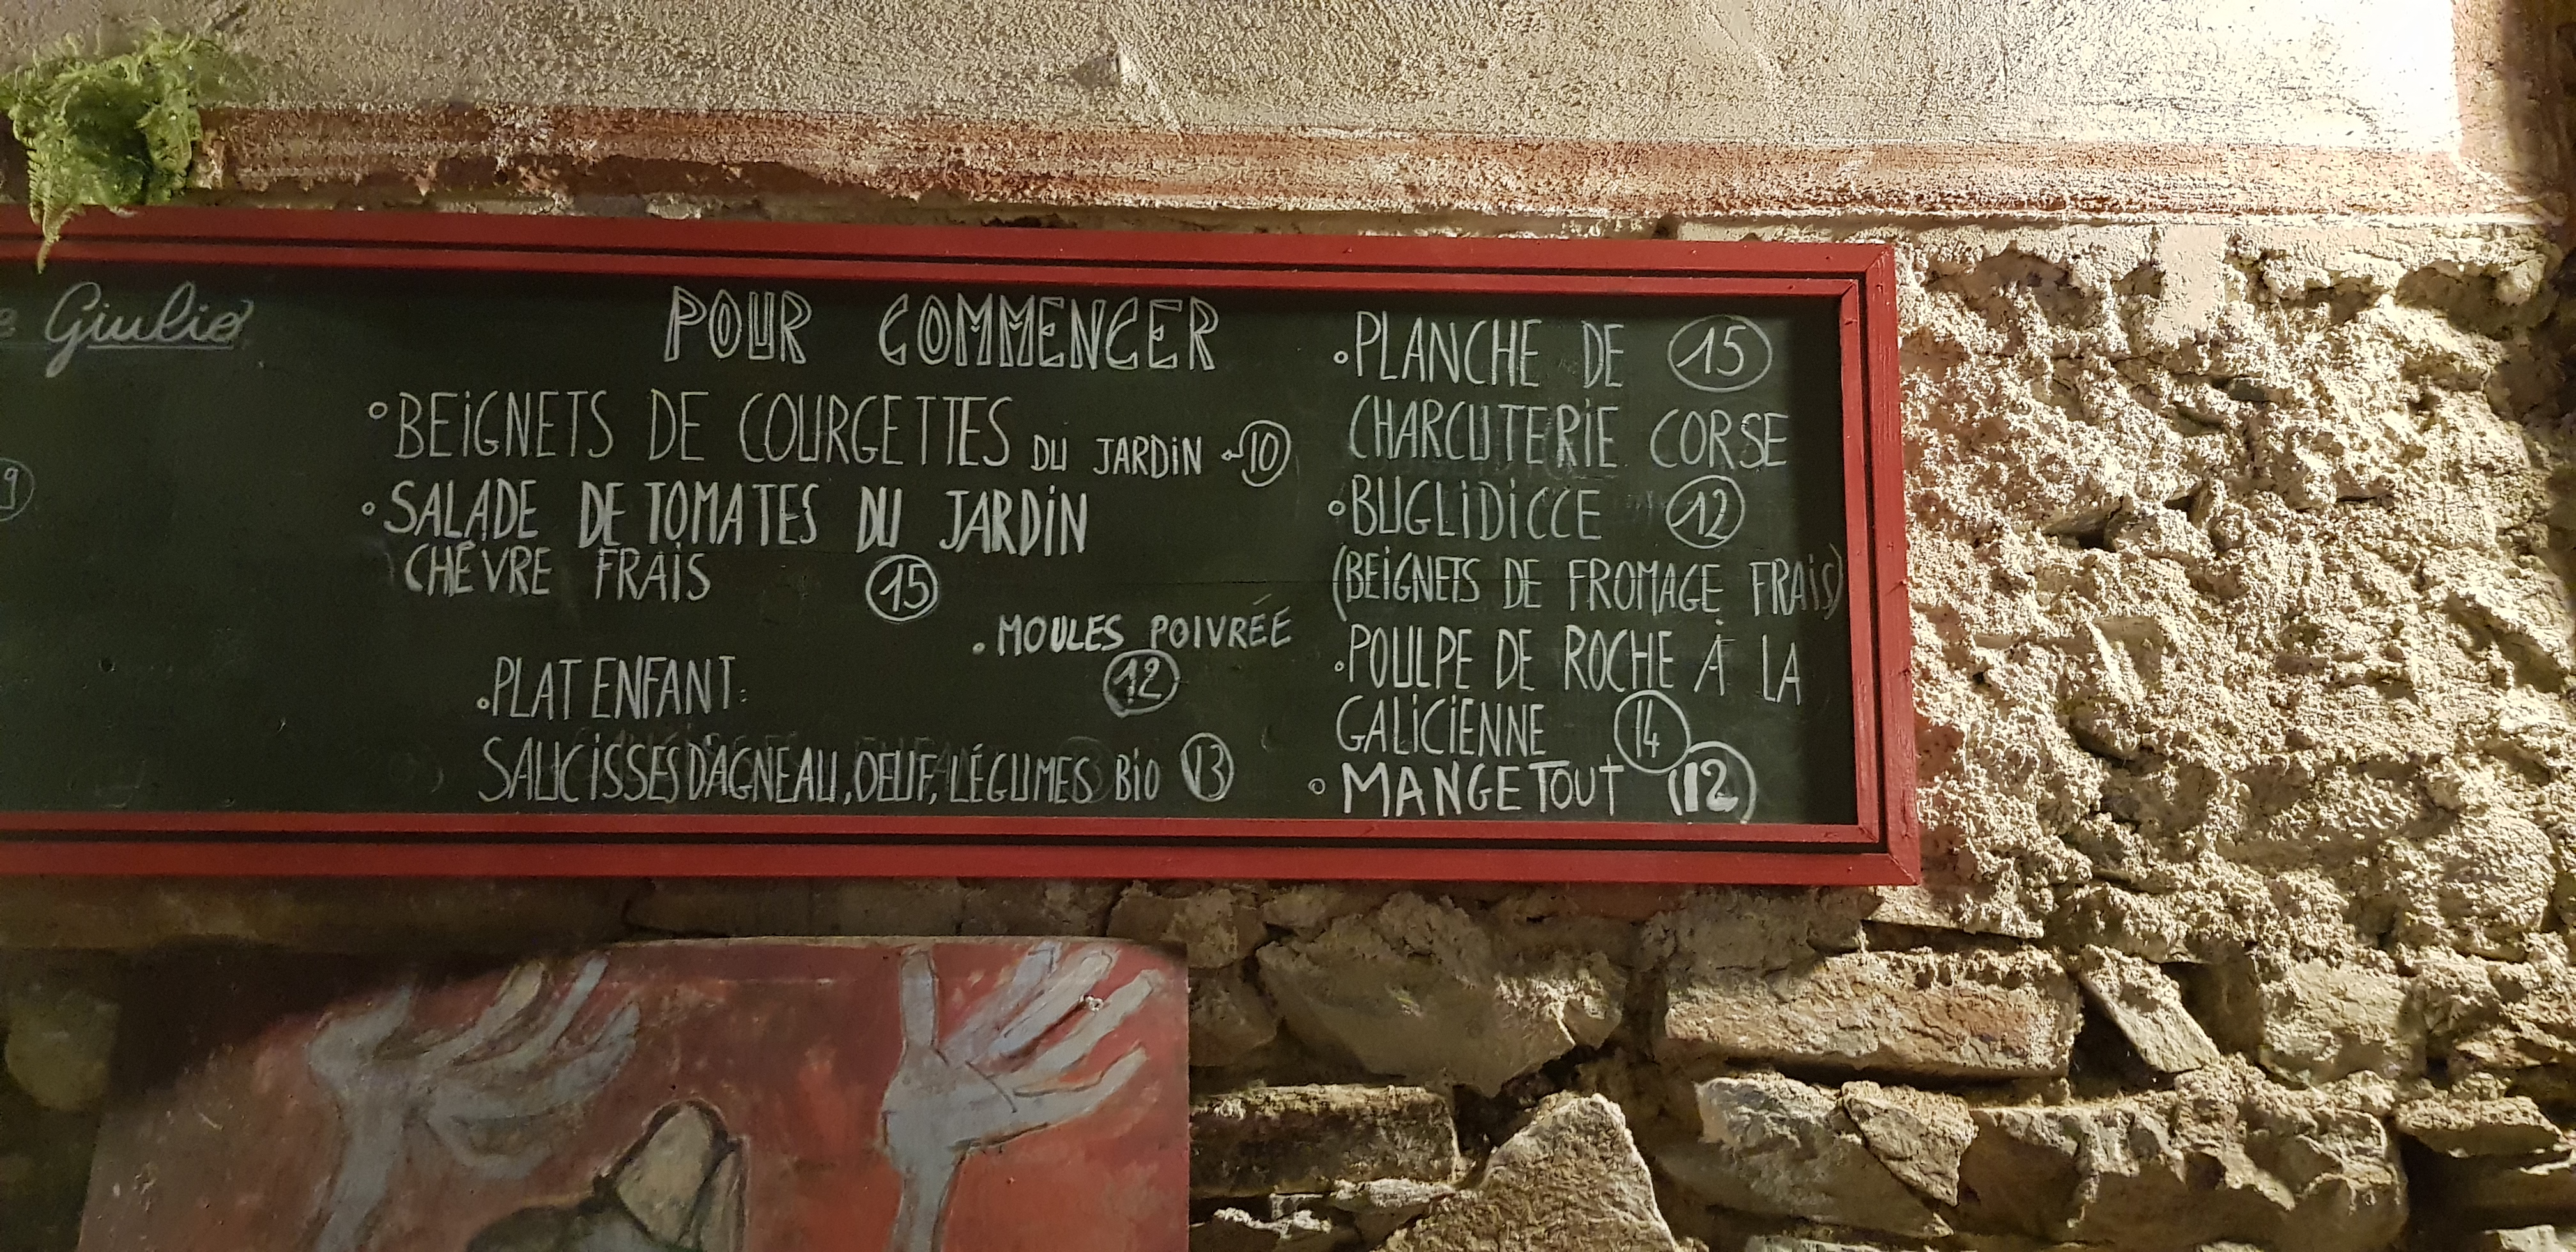 Giulio
9
POUR COMMENCER
°BEIGNETS DE COURGETTES DU JARDIN 10
°SALADE DE TOMATES DU JARDIN
CHÈVRE FRAIS 15
.MOULES POIVRÉE
12
.PLAT ENFANT:
SAUCISSES D'AGNEAU, OEUF, LÉGUMES BIO 13
.PLANCHE DE 15
CHARCUTERIE CORSE
°BUGLIDICCE 12
(BEIGNETS DE FROMAGE FRAIS)
.POULPE DE ROCHE À LA
GALICIENNE 14
°MANGE TOUT 12